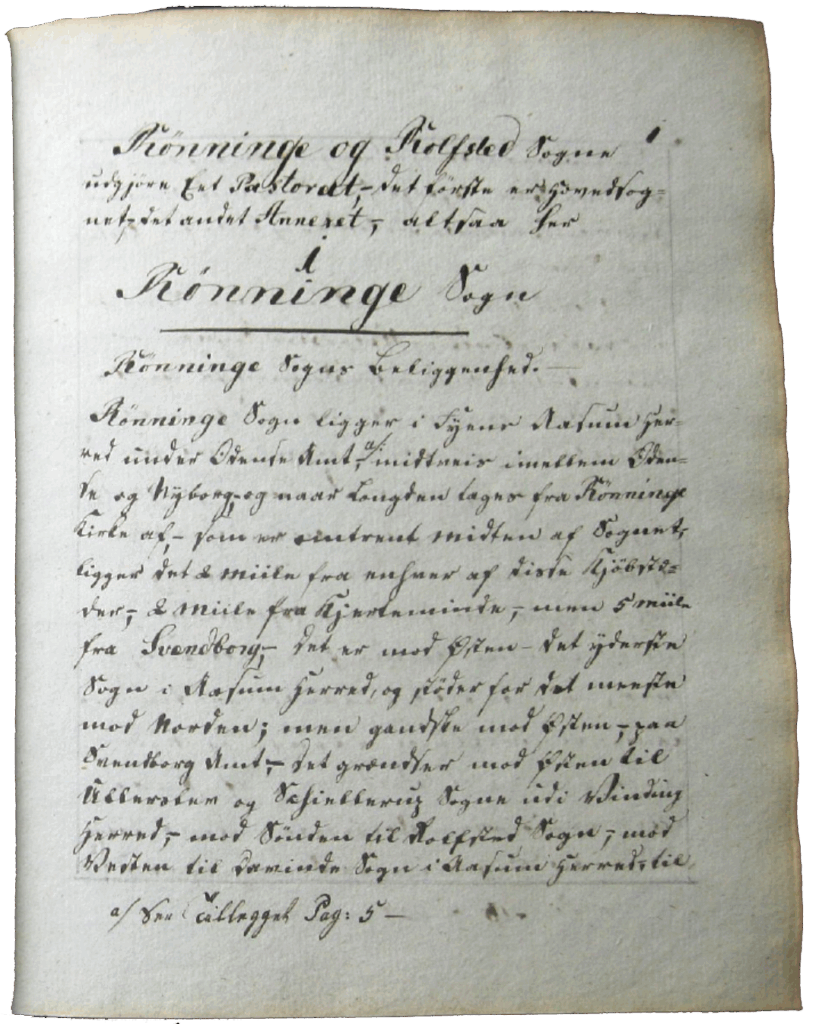 Rönninge og Rolfsted Sogne 1
udgjøre Eet Pastorat,- det første er Hovedsog=
net,- det andet Annexet,- altsaa her
1
Rönninge Sogn
Rönninge Sogns Beliggenhed.-
Rönninge Sogn ligger i Fyens Aasum Her=
red under Odense Amt,- a/ midtveis imellem Oden=
se og Nyborg, og naar Longden tages fra Rönninge
Kirke af,- som er omtrent midten af Sognet,
ligger det 2 Miile fra enhver af disse Kjöbstæ=
der,- 2 Miile fra Kjerteminde,- men 5 Miile
fra Svendborg,- det er mod Østen - det yderste
Sogn i Aasum Herred, og stöder for det meeste
mod Norden; men gandske mod Østen,- paa
Svendborg Amt,- det grændser mod Østen til
Ullerslev og Schiellerup Sogne udi Vinding
Herred,- mod Sönden til Rolfsted Sogn,- mod
Vesten til Davinde Sogn i Aasum Herred, til
a/ See Tillegget Pag: 5 -